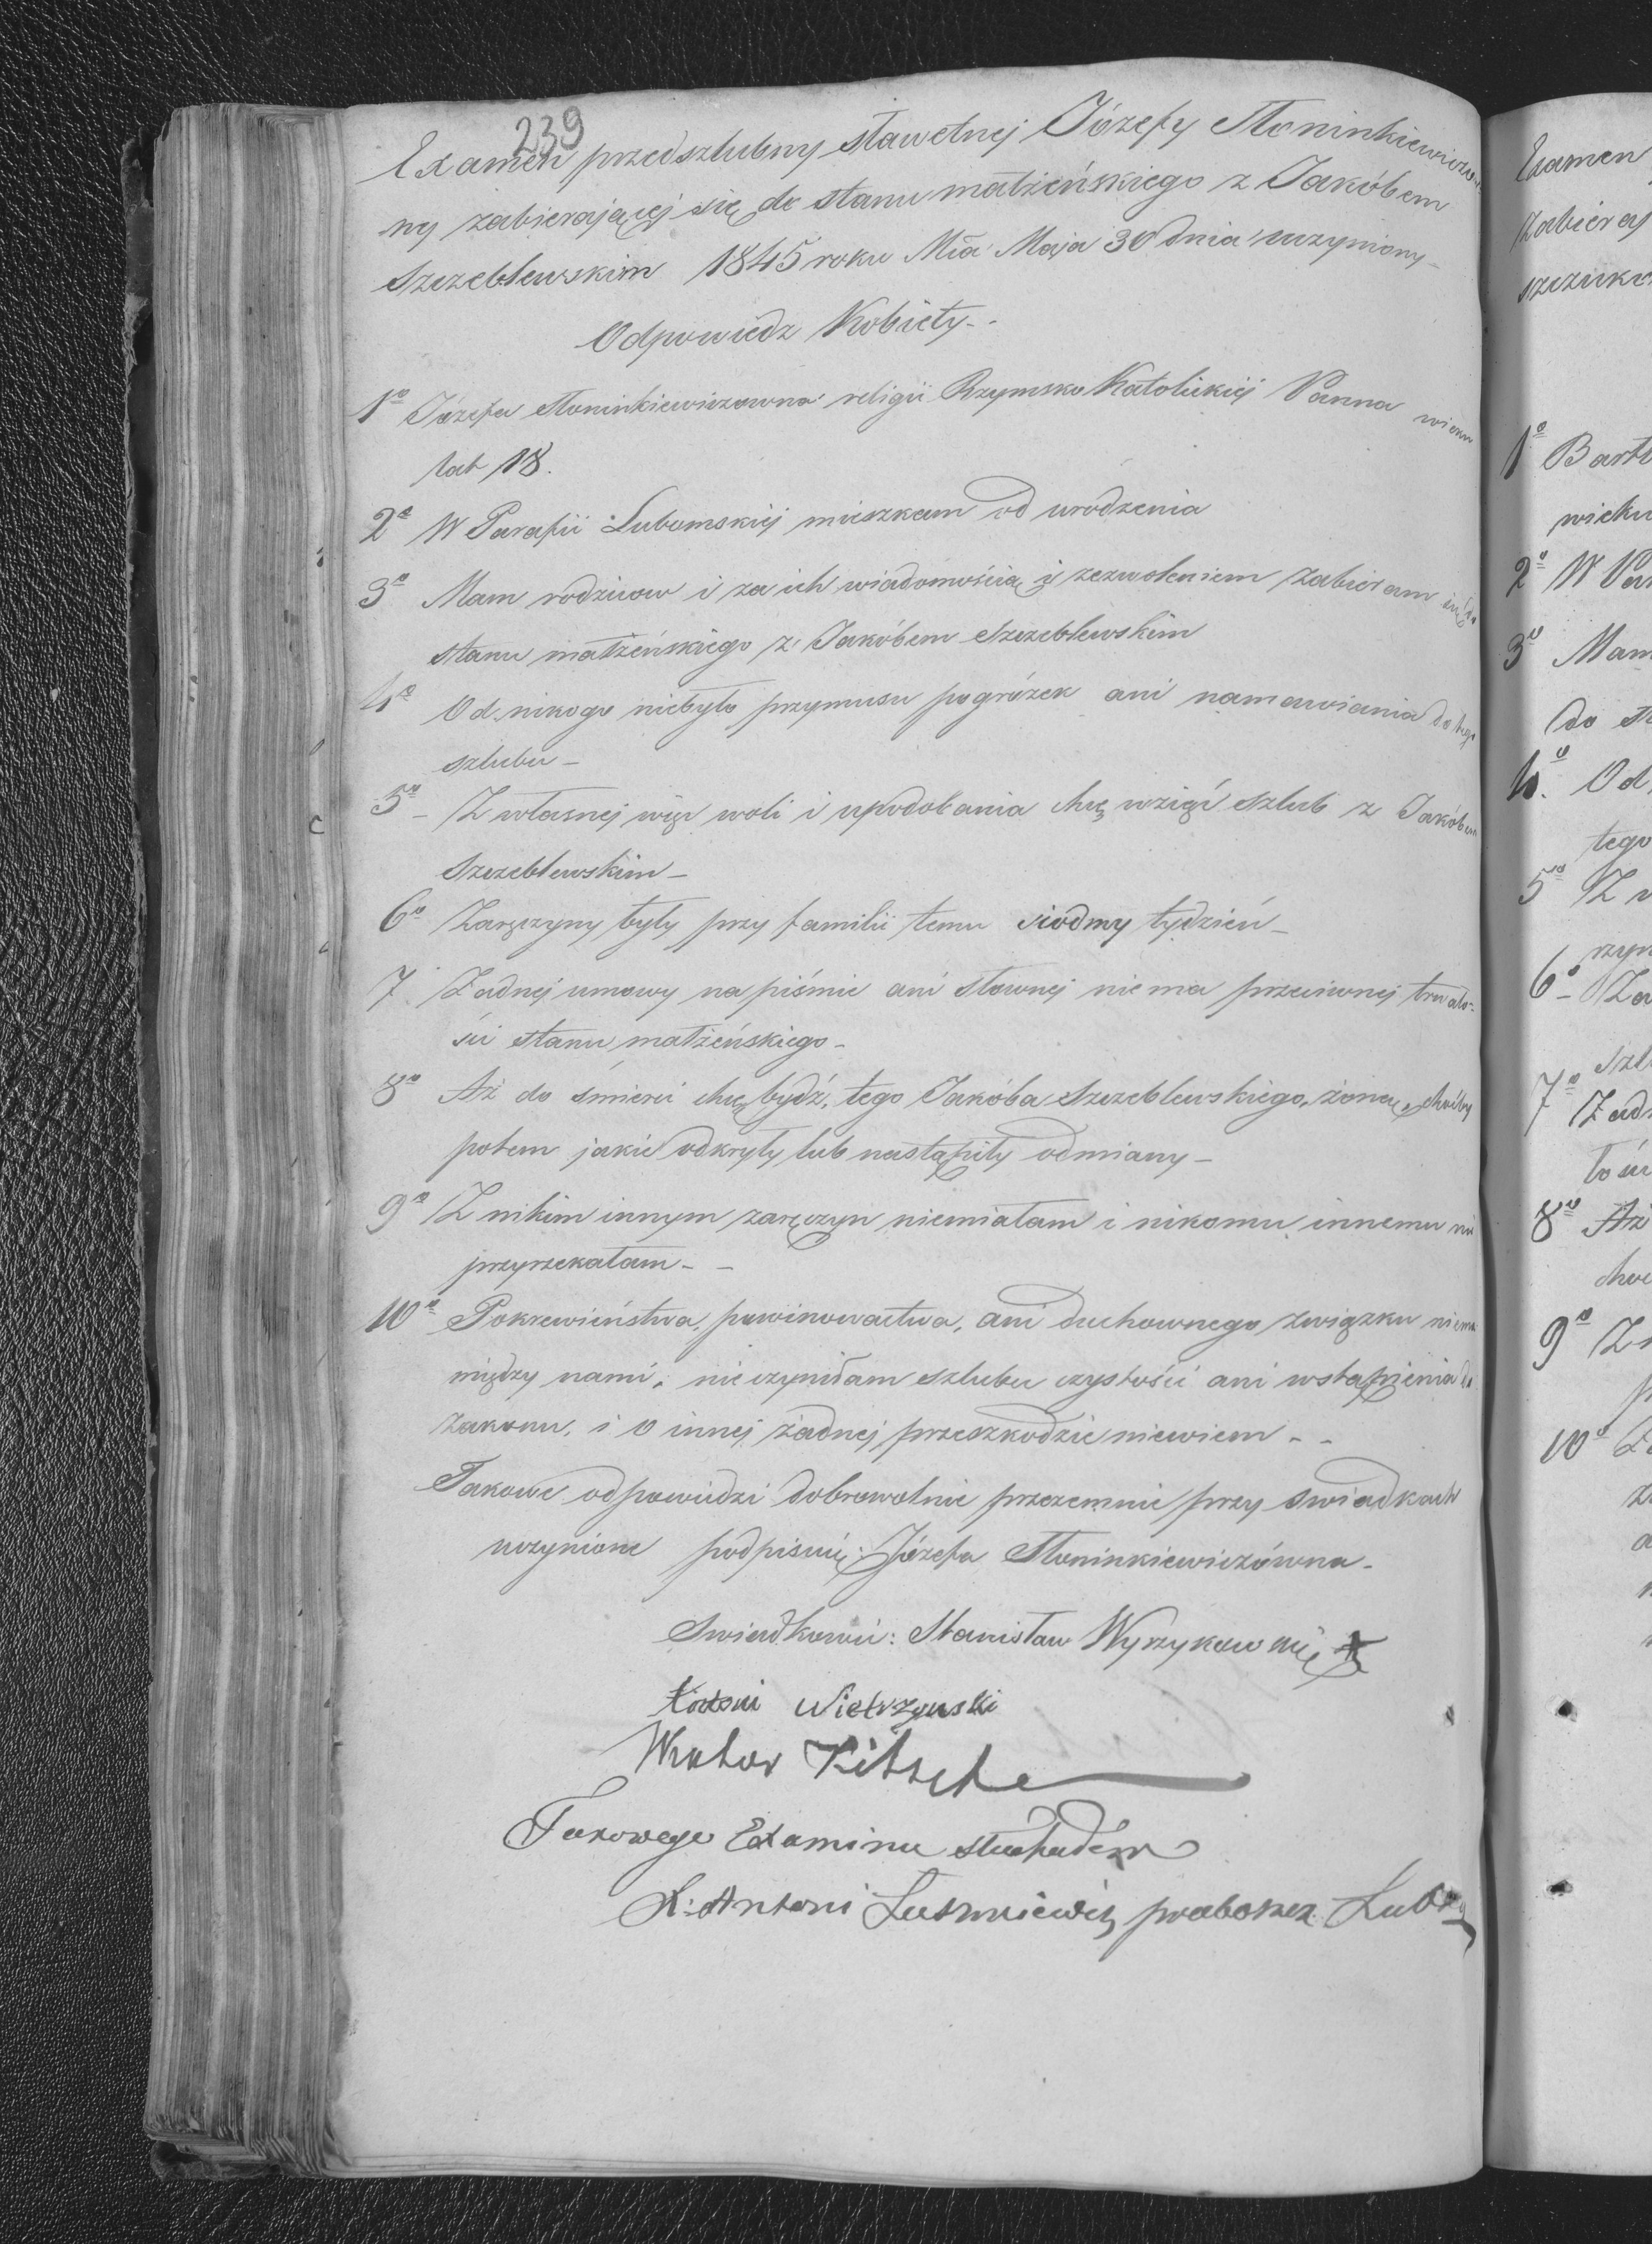 239
Examen przedszlubny sławetnej Józefy Słoninkiewiczow
ny zabierającej się do stanu małżeńskiego z Jakóbem
Szczeblewskim 1845 roku Mca Maja 30 dnia uczyniony_
Odpowiedz Kobiety_.
1º Józefa Słoninkiewiczowna religii Rzymsko Katolickiej Panna wieku
lat 18.
2º W Parafii Lubomskiej mieszkam od urodzenia
3º Mam rodzicow i za ich wiadomością i zezwoleniem zabieram się do
stanu małżeńskiego z Jakóbem Szczeblewskim
4º Od nikogo niebyło przymusu pogróżek ani namawiania do tego
szlubu_
5º_ Z własnej więc woli i upodobania chcę wziąć szlub z Jakóbem
Szczeblewskim_
6º Zaręczyny były przy familii temu siodmy tydzień_
7. Żadnej umowy na piśmie ani słownej nie ma przeciwnej trwało-
ści stanu małżeńskiego_
8º Aż do śmierci chcę bydź, tego Jakóba Szczeblewskiego, żoną, choćby
potem jakie odkryły lub nastąpiły odmiany_
9º Z nikim innym zaręczyn niemiałam i nikomu innemu nie
przyrzekałam_ _
10º Pokrewieństwa, powinowactwa, ani duchownego związku niema
między nami, nieczyniłam szlubu czystości ani wstąpienia do
zakonu, i o innej żadnej przeszkodzie niewiem_ _
Takowe odpowiedzi dobrowolnie przezemnie przy swiadkach
uczynione podpisuię: Józefa Słoninkiewiczówna_
Swiadkowie: Stanisław Wyrzykow
Antoni Wietrzynski
Wiktor
Takowego Examinu słuchałem
X: Antoni proboszcz Lub
Examen
zabieraj
1º Bart
wieku
2º W Par
3º Mam
do st
4º Od
tego
5º Z w
6º_ Za
szl
7º Żad
łości
8º Aż
choć
9º Z n
p
10º